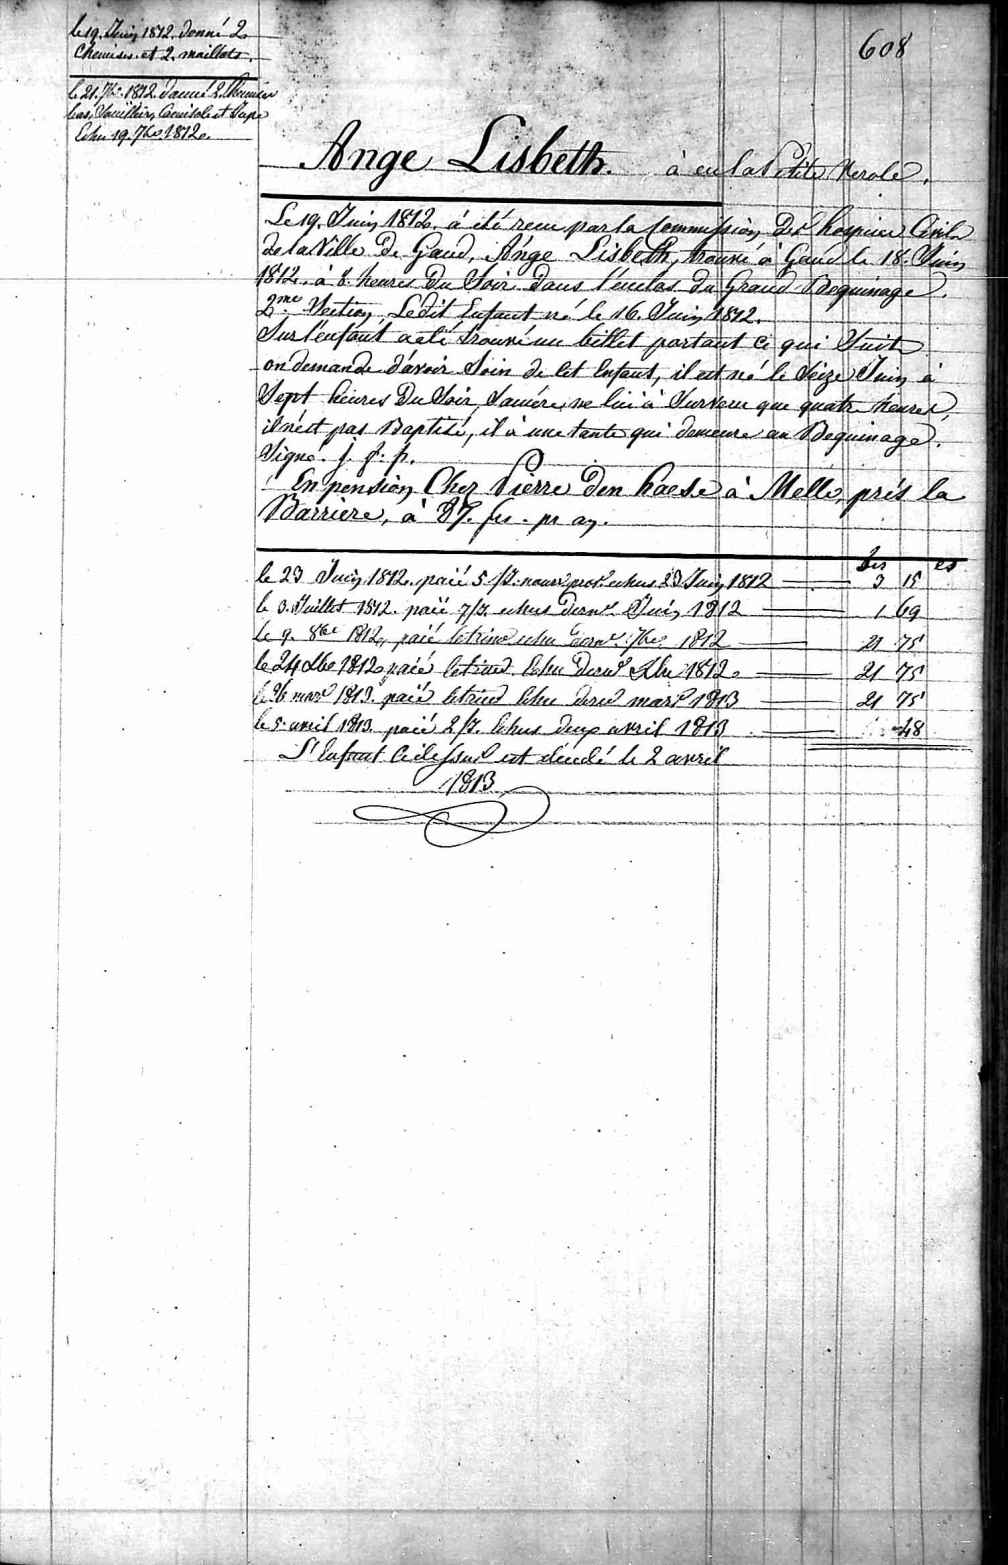 608
le 19. Juin 1812. donné 2
Chemises et 2. maillots.
le 21. 7bre 1812. donné 2 Chemises
bas, Souilliers, Camisole et Jupe
Echu 19. 7bre 1812.
Ange Lisbeth. à eu la Petite Verole.
Le 19. Juin 1812. á été recu par la Commission Des hospices Civils
de la Ville de Gand, Ange Lisbeth, trouvé à Gand le 18. Juin
1812. à 8. heures Du Soir Dans l'enclos du Grand Beguinage.
2me Section Ledit Enfant né le 16. Juin 1812.
Sur l'enfant a eté trouvé un billet portant Ce qui Suit
on demande d'avoir Soin de cet Enfant, il est né le Seize Juin à
Sept heures Du Soir, Samére ne lui à Surveçu que quatre heures,
il n'est pas Baptisé, il à une tante qui demeure au Beguinage.
Signé. j. f. p.
En pension Chez Pierre Den haese à Melle, prés la
Barriere, à 87. frs. pr an.
frs cs
le 23 Juin 1812. paié 5/7. echus 23 Juin 1812 3 15
le 3. Juillet 1812. paié 7/7 echus dernr. Juin 1812 1 69
le 9. 8bre 1812, paié letrime echu dernr. 7bre 1812 21 75
le 24 Xbre 1812 paié letrime Echu dernr Xbre 1812 21 75
le 26 mars 1813. paié letrime Echu dernr mars 1813 21 75
le 5. avril 1813. paié 2/7. Echus deux avril 1813 48
L'Enfant Cidessus est décédé le 2 avril
1813